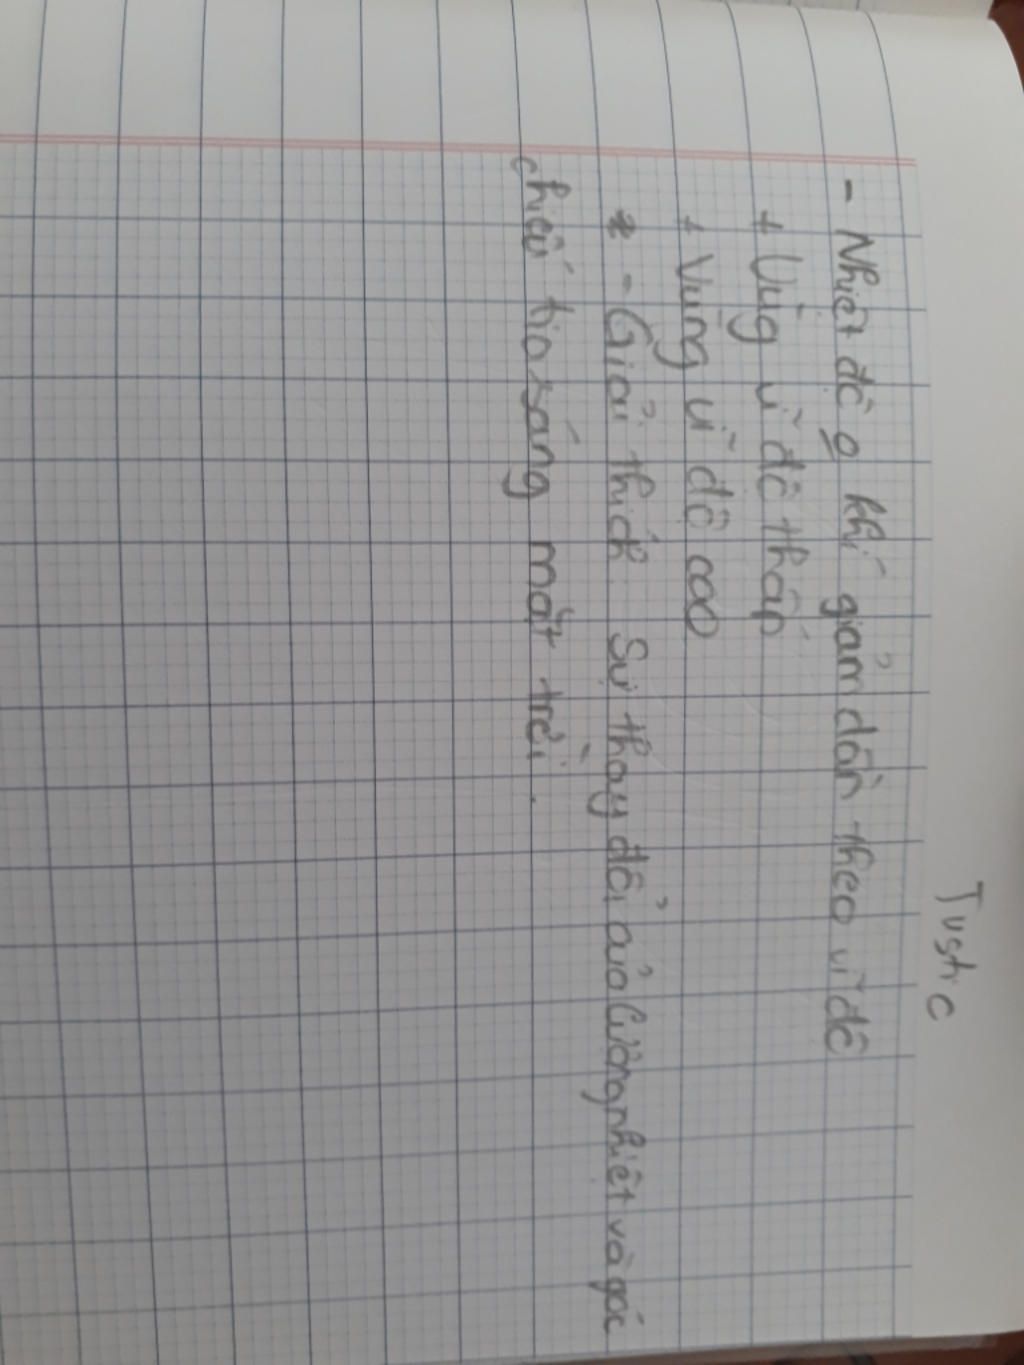 Tustic
- Nhiệt độ o khí giảm dần theo vĩ độ
+ Vùg vĩ độ thấp
+ Vùng vĩ độ cao
- Giải thích Sự thay đổi của lượng nhiệt và góc
chiếu tia sáng mặt trời.